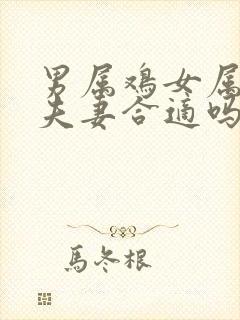 男属鸡女属
夫妻合适吗
馬冬根